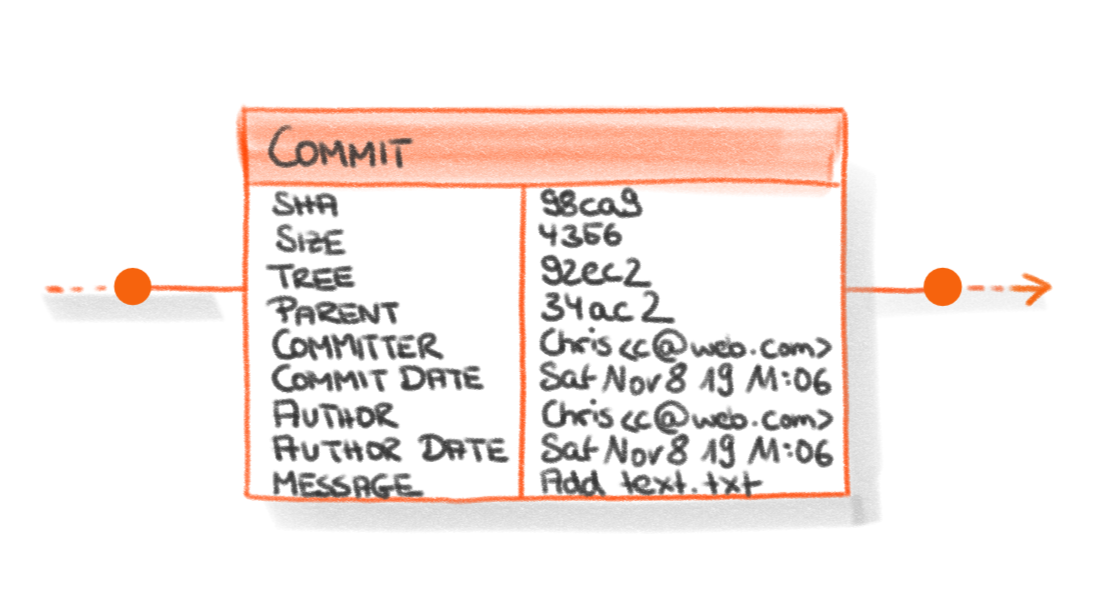 COMMIT
SHA 98ca9
SIZE 4356
TREE 92ec2
PARENT 34ac2
COMMITTER Chris <c@web.com>
COMMIT DATE Sat Nov 8 19 11:06
AUTHOR Chris <c@web.com>
AUTHOR DATE Sat Nov 8 19 11:06
MESSAGE Add text.txt